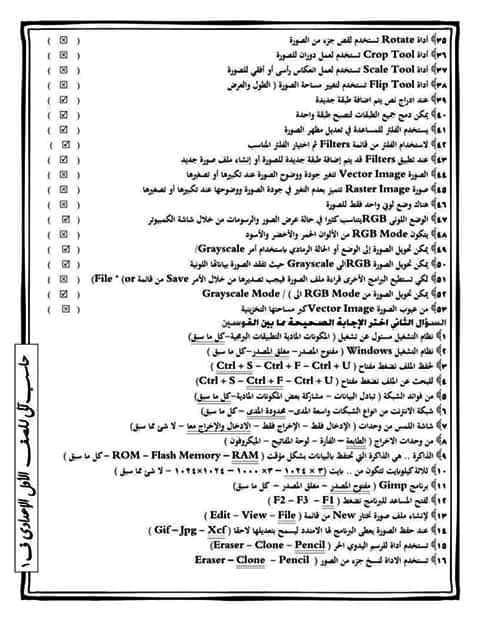 ٣٥) أداة Rotate تستخدم لقص جزء من الصورة ( ☒ )
٣٦) أداة Crop Tool تستخدم لعمل دوران للصورة ( ☒ )
٣٧) أداة Scale Tool تستخدم لعمل انعكاس رأسى أو أفقي للصورة ( ☒ )
٣٨) أداة Flip Tool تستخدم لتغيير مساحة الصورة ( الطول والعرض ( ☒ )
٣٩) عند ادراج نص يتم اضافة طبقة جديدة ( ☑ )
٤٠) يمكن دمج جميع الطبقات لتصبح طبقة واحدة ( ☑ )
٤١) يستخدم الفلتر للمساعدة في تعديل مظهر الصورة ( ☑ )
٤٢) لاستخدام الفلتر من قائمة Filters ثم اختيار الفلتر المناسب ( ☑ )
٤٣) عند تطبيق Filters قد يتم إضافة طبقة جديدة للصورة أو إنشاء ملف صورة جديد ( ☑ )
٤٤) الصورة Vector Image تتغير جودة ووضوح الصورة عند تكبيرها أو تصغيرها ( ☒ )
٤٥) صورة Raster Image تتميز بعدم التغير في جودة الصورة ووضوحها عند تكبيرها أو تصغيرها ( ☒ )
٤٦) هناك وضع لوني واحد فقط للصورة ( ☒ )
٤٧) الوضع اللونى RGB يتناسب كثيرا في حالة عرض الصور والرسومات من خلال شاشة الكمبيوتر ( ☑ )
٤٨) يتكون RGB Mode من الألوان الحمر والأخضر والأسود ( ☒ )
٤٩) يمكن تحويل الصورة إلى الوضع أو الحالة الرمادي باستخدام أمر Grayscale/ ( ☑ )
٥٠) يمكن تحويل الصورة RGB الى Grayscale حيث تفقد الصورة بياناتها اللونية ( ☑ )
٥١) لكي تستطيع البرامج الأخرى قراءة ملف الصورة فيجب تصديرها من خلال الأمر Save من قائمة File * (or ( ☒ )
٥٢) يمكن تحويل الصورة من RGB Mode الى ) / Grayscale Mode ( ☑ )
٥٣) من عيوب الصورة Vector Image كبر مساحتها التخزينية ( ☒ )
السؤال الثاني اختر الإجابة الصحيحة مما بين القوسين
١) نظام التشغيل مسئول عن تشغيل ( المكونات المادية التطبيقات البرمجية-كل ما سبق)
٢) نظام التشغيل Windows ( مفتوح المصدر- مغلق المصدر-كل ما سبق )
٣) لحفظ الملف نضغط مفتاح ( Ctrl + S – Ctrl + F – Ctrl + U )
٤) للبحث عن الملف نضغط مفتاح ( Ctrl + S – Ctrl + F – Ctrl + U)
٥) من فوائد الشبكة ( تبادل البيانات – مشاركة بعض المكونات المادية-كل ما سبق)
٦) شبكة الانترنت من انواع الشبكات واسعة المدى- محدودة المدى-كل ما سبق)
٧) شاشة اللمس من وحدات ( الإدخال فقط – الإخراج فقط – الادخال والإخراج معا – لا شئ مما سبق)
٨) من وحدات الاخراج ( الطابعة – الفأرة – لوحة المفاتيح – الميكروفون )
٩) الذاكرة .. هي الذاكرة التي تحتفظ بالبيانات بشكل مؤقت ( ROM – Flash Memory – RAM -كل ما سبق )
١٠) ثلاثة كيلوبايت تتكون من .. بايت (٣ × ١٠٢٤ – ٣× ١٠٠٠ – ١٠٢٤×١٠٢٤ – لا شئ مما سبق)
١١) برنامج Gimp ( مفتوح المصدر – مغلق المصدر – كل ما سبق )
١٢) لفتح المساعد للبرنامج نضغط ( F2 – F3 – F1 )
١٣) لإنشاء ملف صورة نختار New من قائمة ( Edit – View – File )
١٤) عند حفظ الصورة يعطى البرنامج لها الامتدد ليسمح بتعديلها لاحقا ( Gif – Jpg – Xcf )
١٥) تستخدم أداة للرسم اليدوي الحر ( Eraser – Clone – Pencil)
١٦) تستخدم الاداة لنسخ جزء من الصور ( Eraser – Clone – Pencil
حاسب آلى للصف الأول الإعدادى ف ١